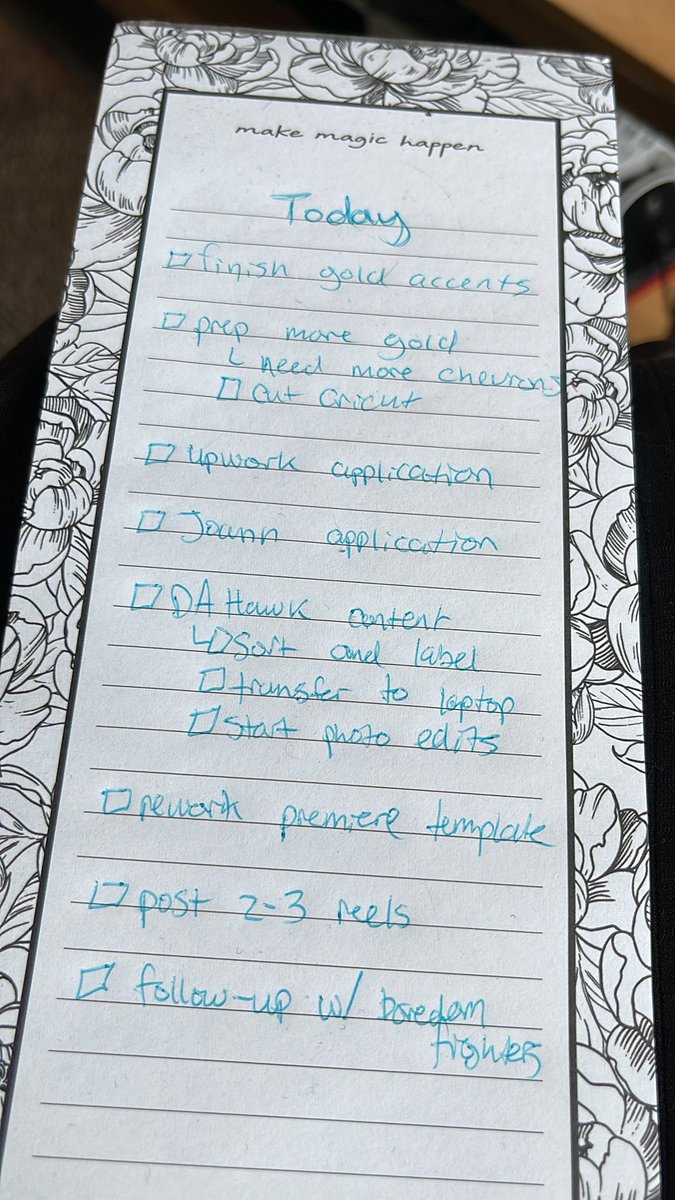 make magic happen
Today
finish gold accents
prep more gold
need more chevrons
cut cricut
upwork application
Joann application
DA Hawk content
Sort and label
transfer to laptop
start photo edits
rework premiere template
post 2-3 reels
follow-up w/ boredom